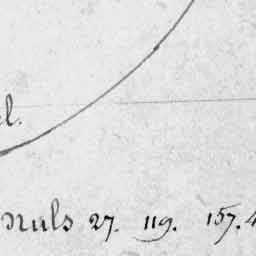 l.
nuls 27. 119. 157. 4